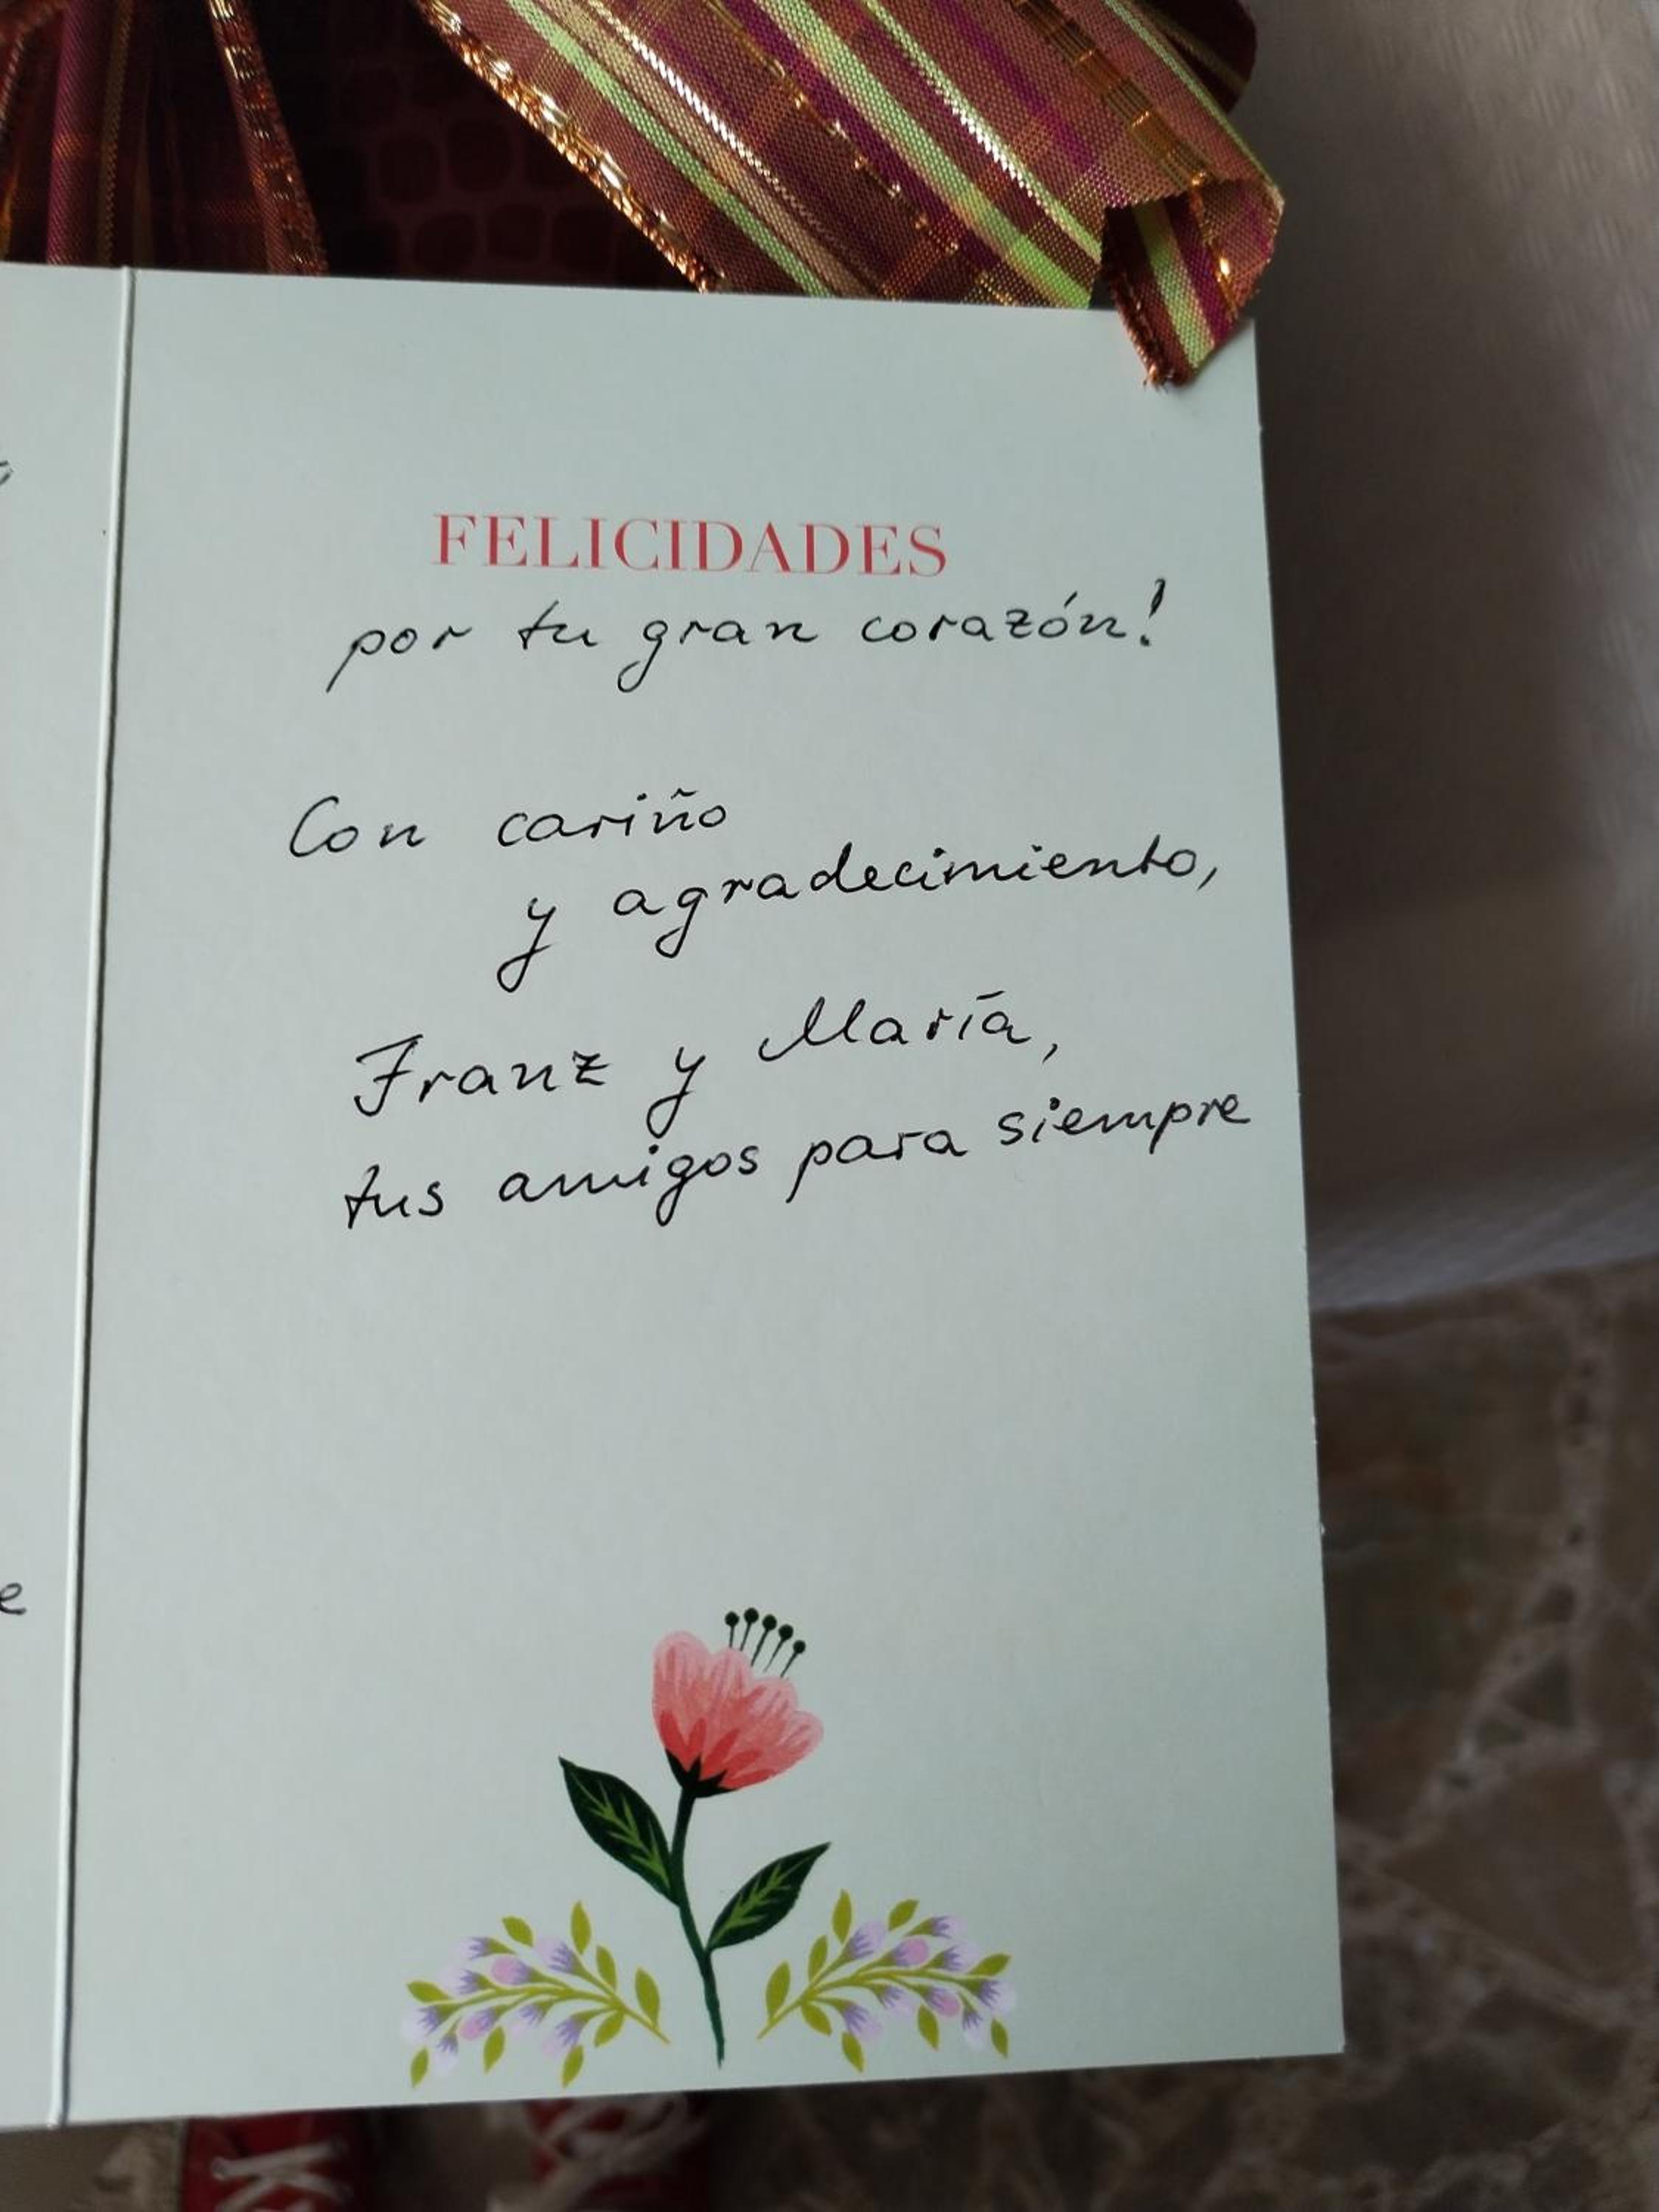 FELICIDADES
por tu gran corazón!
Con cariño
y agradecimiento,
Franz y María,
tus amigos para siempre